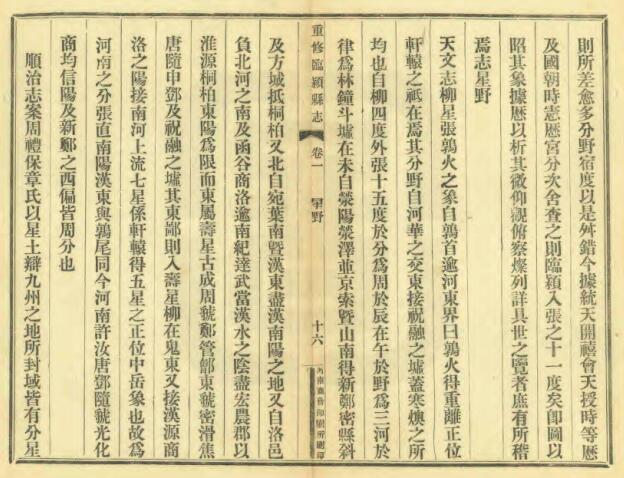 則所差愈多分野宿度以是舛錯今據統天開禧會天授時等歷
及國朝時憲歷宮分次舍查之則臨穎入張之十一度矣卽圖以
昭其象據歷以析其微仰觀俯察燦列詳具世之覽者庶有所稽
焉志星野
天文志柳星張鶉火之象自鶉首逾河東界曰鶉火得重離正位
軒轅之祗在焉其分野自河華之交東接祝融之墟蓋寒燠之所
均也自柳四度外張十五度於分爲周於辰在午於野爲三河於
律爲林鐘斗墟在未自滎陽滎澤並京索暨山南得新鄭密縣斜
重修臨潁縣志
卷一
星野
十六
及方城抵桐柏又北自宛葉南暨漢東盡漢南陽之地又自洛邑
負北河之南及函谷商洛逾南紀達武當漢水之陰盡宏農郡以
淮源桐柏東陽爲限而東屬壽星古成周虢鄭管鄶東虢密滑焦
唐隨申鄧及祝融之墟其東鄙則入壽星柳在鬼東又接漢源商
洛之陽接南河上流七星係軒轅得五星之正位中岳象也故爲
河南之分張直南陽漢東與鶉尾同今河南許汝唐鄧隨虢光化
商均信陽及新鄭之西偏皆周分也
順治志案周禮保章氏以星土辯九州之地所封域皆有分星